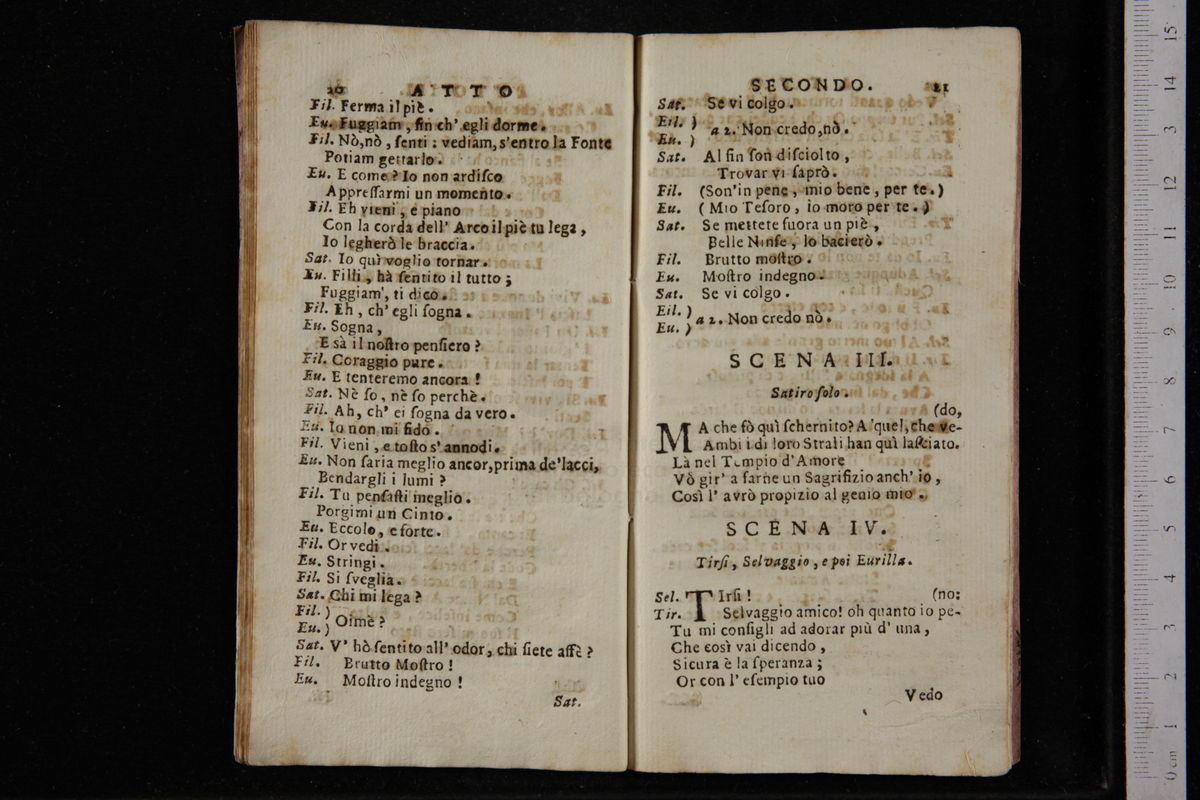 20 ATTO
Fil. Ferma il piè.
Eu. Fuggiam, fin ch' egli dorme.
Fil. Nò,nò, ſenti: vediam, s'entro la Fonte
Potiam gettarlo.
Eu. E come? Io non ardiſco
Appreſſarmi un momento.
Fil. Eh vieni, e piano
Con la corda dell' Arco il piè tu lega,
Io legherò le braccia.
Sat. Io quì voglio tornar.
Eu. Filli, hà ſentito il tutto;
Fuggiam', ti dico.
Fil. Eh, ch' egli ſogna.
Eu. Sogna,
E sà il noſtro penſiero?
Fil. Coraggio pure.
Eu. E tenteremo ancora!
Sat. Nè ſo, nè ſo perchè.
Fil. Ah, ch' ei ſogna da vero.
Eu. Io non mi fido.
Fil. Vieni, e toſto s' annodi.
Eu. Non ſaria meglio ancor,prima de'lacci,
Bendargli i lumi?
Fil. Tu penſaſti meglio.
Porgimi un Cinto.
Eu. Eccolo, e forte.
Fil. Or vedi.
Eu. Stringi.
Fil. Si ſveglia.
Sat. Chi mi lega?
Fil. )
Eu. ) Oimè?
Sat. V' hò ſentito all' odor, chi ſiete affè?
Fil. Brutto Moſtro!
Eu. Moſtro indegno!
Sat.
SECONDO. 21
Sat. Se vi colgo.
Eil. )
Eu. ) a 2. Non credo,nò.
Sat. Al fin ſon diſciolto,
Trovar vi ſaprò.
Fil. (Son'in pene, mio bene, per te.)
Eu. (Mio Teſoro, io moro per te.)
Sat. Se mettete fuora un piè,
Belle Ninfe, lo bacierò.
Fil. Brutto moſtro.
Eu. Moſtro indegno.
Sat. Se vi colgo.
Eil. )
Eu. ) a 2. Non credo nò.
SCENA III.
Satiro ſolo.
(do,
MA che fò quì ſchernito? A quel, che ve-
Ambi i di loro Strali han quì laſciato.
Là nel Tempio d'Amore
Vò gir' a farne un Sagrifizio anch' io,
Così l' avrò propizio al genio mio.
SCENA IV.
Tirſi, Selvaggio, e poi Eurilla.
Sel. TIrſi! (no:
Tir. Selvaggio amico! oh quanto io pe-
Tu mi conſigli ad adorar più d' una,
Che così vai dicendo,
Sicura è la ſperanza;
Or con l' eſempio tuo
Vedo
0 cm 1 2 3 4 5 6 7 8 9 10 11 12 13 14 15